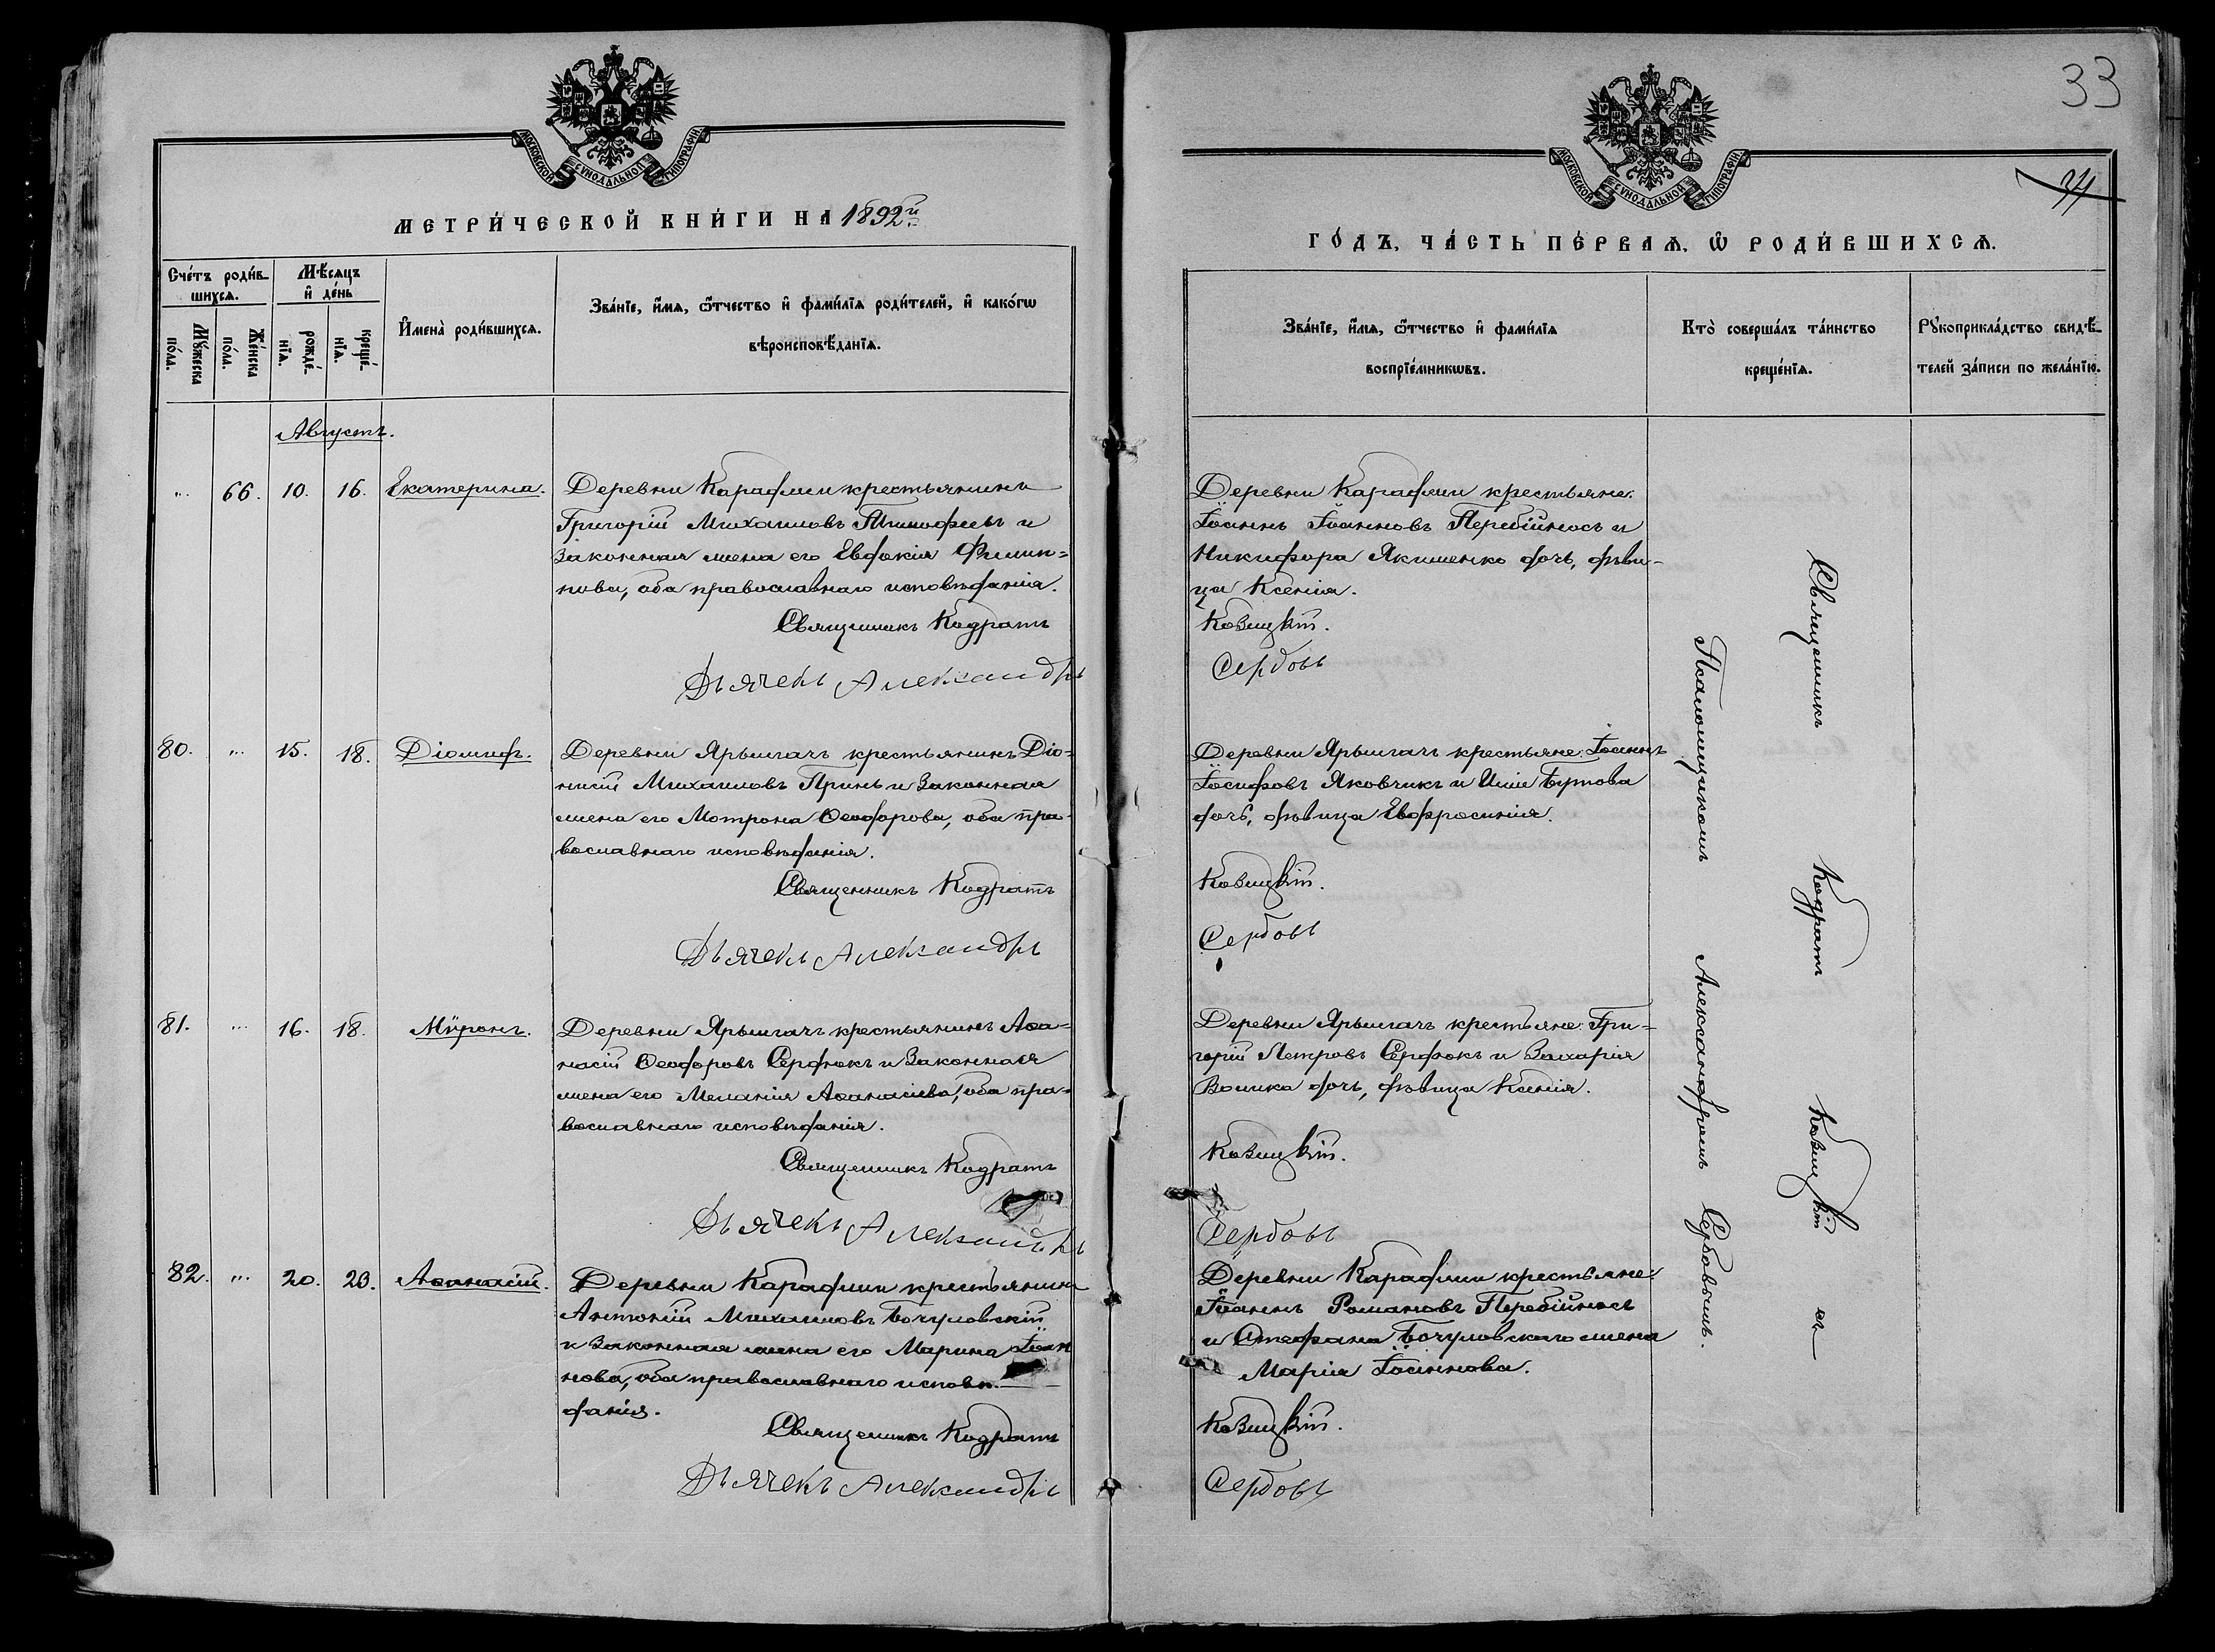 33
МОСКОВСКОЙ СѴНОДАЛЬНОЙ ТИПОГРАФІИ
МЕТРИ́ЧЕСКОЙ КНИ́ГИ НА 1892й
Сче́тъ роди́в-
шихсѧ.
Мѣ́сѧцъ
и҆ де́нь
Мꙋ́жеска
по́ла.
Же́нска
по́ла.
рожде́-
нїѧ.
креще́-
нїѧ.
И҆мена̀ роди́вшихсѧ.
Зва́нїе, и҆́мѧ, ѻ҆́тчество и҆ фамі́лїѧ роди́телей, и҆ како́гѡ
вѣроисповѣ́данїѧ.
Августъ.
" 66. 10. 16. Екатерина.
Деревни Карафмии крестьянинъ
Григорій Михаиловъ Тимофеевъ и
законная жена его Евдокія Филип=
пова, оба православнаго исповѣданія.
Священникъ Кодратъ
Дьячекъ Александръ
80. " 15. 18. Діомидъ.
Деревни Ярылгачъ крестьянинъ Діо=
нисій Михаиловъ Принь и законная
жена его Мотрона Ѳеодорова, оба пра-
вославнаго исповѣданія.
Священникъ Кодратъ
Дьячекъ Александръ
81. " 16. 18. Мѵронъ.
Деревни Ярылгачъ крестьянинъ Аѳа=
насій Ѳеодоровъ Сердюкъ и законная
жена его Меланія Аѳанасіева, оба пра=
вославнаго исповѣданія.
Священникъ Кодратъ
Дьячекъ Александръ
82. " 20. 23. Аѳанасій.
Деревни Карафмии крестьянинъ
Антоній Михаиловъ Бочуловскій
и законная жена его Марина Іоан
нова, оба православнаго исповѣ-
данія.
Священникъ Кодратъ
Дьячекъ Александръ
МОСКОВСКОЙ СѴНОДАЛЬНОЙ ТИПОГРАФІИ
ГО́ДЪ, ЧА́СТЬ ПЕ́РВАѦ, Ѡ҆ РОДИ́ВШИХСѦ.
Зва́нїе, и҆́мѧ, ѻ҆́тчество и҆ фамі́лїѧ
воспрїе́мникѡвъ.
Кто̀ соверша́лъ та́инство
креще́нїѧ.
Рꙋкоприкла́дство свидѣ́-
телей за́писи по жела́нїю.
Деревни Карафмии крестьяне:
Іоаннъ Іоанновъ Перебійносъ и
Никифора Якименко дочь, дѣви-
ца Ксенія.
Ковицкій.
Сербовъ
Деревни Ярылгачъ крестьяне: Іоаннъ
Іосифовъ Яковчикъ и Иліи Буртова
дочь, дѣвица Евфросинія.
Ковицкій.
Сербовъ
Деревни Ярылгачъ крестьяне: Гри=
горій Петровъ Сердюкъ и Захарія
Волика дочь, дѣвица Ксенія.
Ковицкій.
Сербовъ
Деревни Карафмии крестьяне:
Іоаннъ Романовъ Перебійносъ
и Стефана Бочуловскаго жена
Марія Іоаннова.
Ковицкій.
Сербовъ
Священникъ Кодратъ Ковицкій съ
Псаломщикомъ Александромъ Сербовымъ.